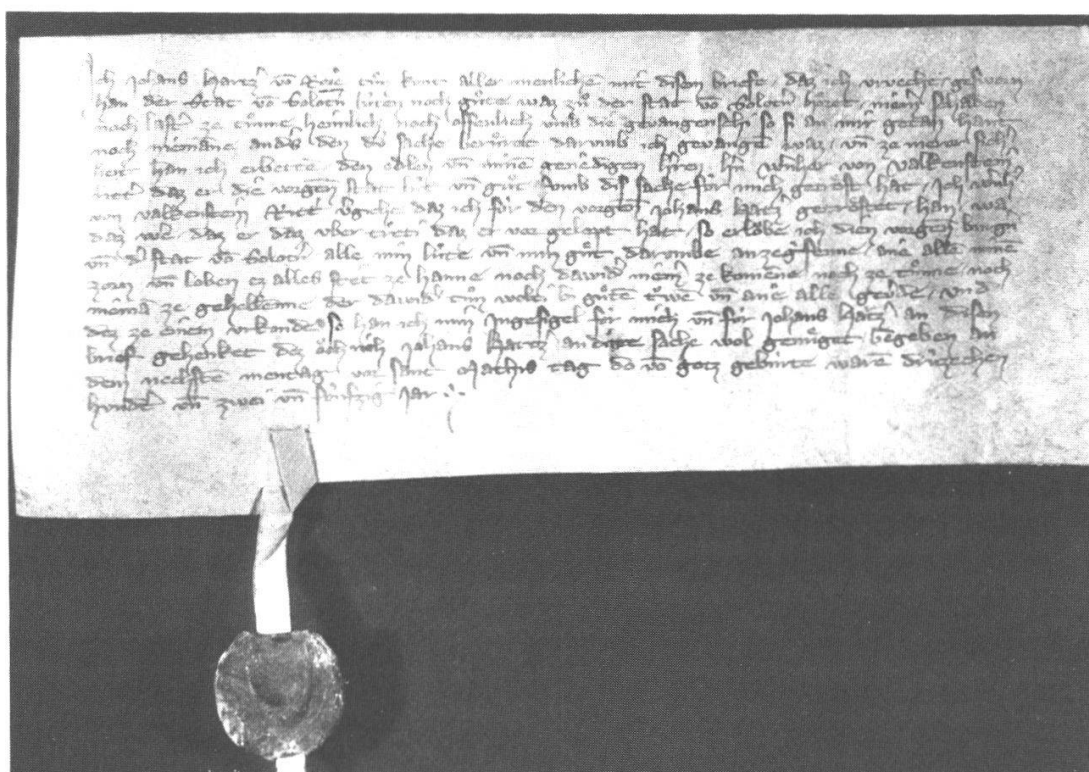 Ich Johans Hartz̉ vō tůn kunt aller menliche mit disen briefe daz ich urvecht geſworn
han der Stat vō Solotn̄ lúten noch gůte waz zů der ſtat vō Solotn̄ hôret ſchaden
noch laſt̉ ze tůnne heimlich noch offenlich umb die gevangenſchi ſo ſi an mir getan hant
noch niemane and̉s den dú ſache berůret darumb ich gevangē waz / un̄ ze merer ſich̉
heit han ich erbettē den edlen un̄ minē genedigen h̉ren / h̉n von valkenſtein
ritt̉ daz er die vorgen̄ ſtat lút un̄ gůt umb diſ ſache fúr mich getrôſt hat / Ich
von valkenſtein Ritt̉ daz ich fúr den vorgen̄ Johans Hatz̉ getrôſtet han wa
daz w̉e daz er daz uber trēti daz er vor gelopt hat / ſo erlôbe ich dien vorgen̄ burgn̄
un̄ d̉ ſtat vō Solotn̄ alle min lúte un̄ min gůt / darumbe anzegriffenne / anē allē minē
zorn un̄ loben ez alles ſtet ze hanne noch dawid̉ niem̉ ze komēne noch ze tůnne / noch
niema ze gehellenne der dawid̉ tůn welt bi gůtē trúwē un̄ anē alle gev̉de / und
dez ze einem urkunde ſo han ich min Ingeſigel fúr mich un̄ fúr Johans Hatz̉ an diſen
brief gehenket dez ôch ich Johans Hartz̉ an dirre ſache wol genůget begeben an
dem nechſtē mentag vor ſant Mathis tag do vō gotz gebúrte warē drúzechen
hund̉t un̄ zwei un̄ fúnfzig Jar